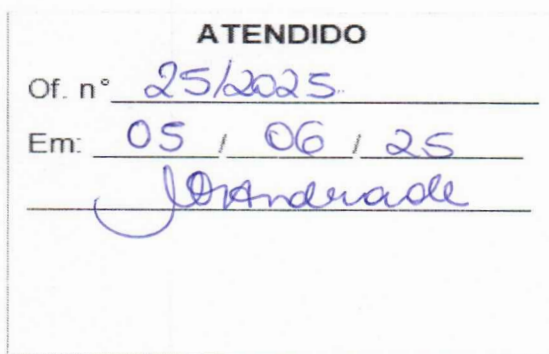 ATENDIDO
Of. n° 25/2025
Em: 05 / 06 / 25
Andrade